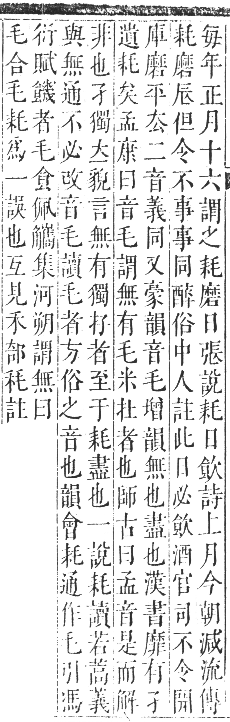 每年正月十六謂之耗磨日張說耗日飲詩上月今朝減流傳
耗磨辰但令不事事同醉俗中人註此日必飲酒官司不令開
庫磨平去二音義同又豪韻音毛增韻無也盡也漢書靡有孑
遺耗矣孟康曰音毛謂無有毛米壯者也師古曰孟音是而解
非也孑獨大貌言無有獨者至于耗盡也一說耗讀若蒿義
與無通不必改音毛讀毛者方俗之音也韻會耗通作毛引馮
衍賦饑者毛食佩觿集河朔謂無曰
毛合毛耗爲一誤也互見禾部秏註